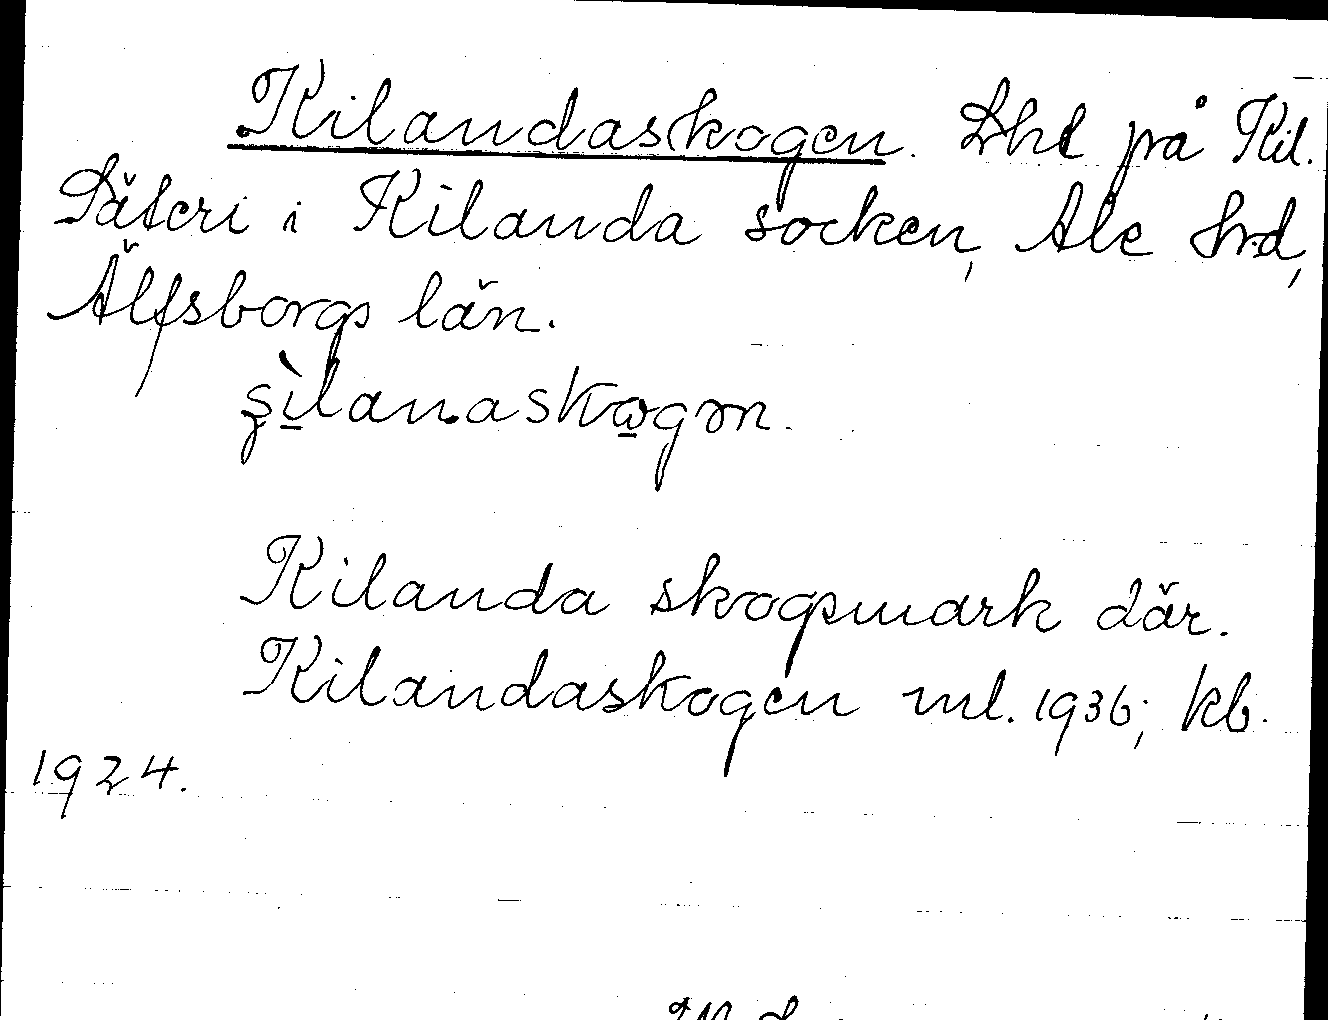 Kilandaskogen. Lht på Kil.
Säteri i Kilanda socken, Ale hrd,
Älfsborgs län.
Kilanda skogsmark där.
Kilandaskogen ml. 1936; kb.
1924.